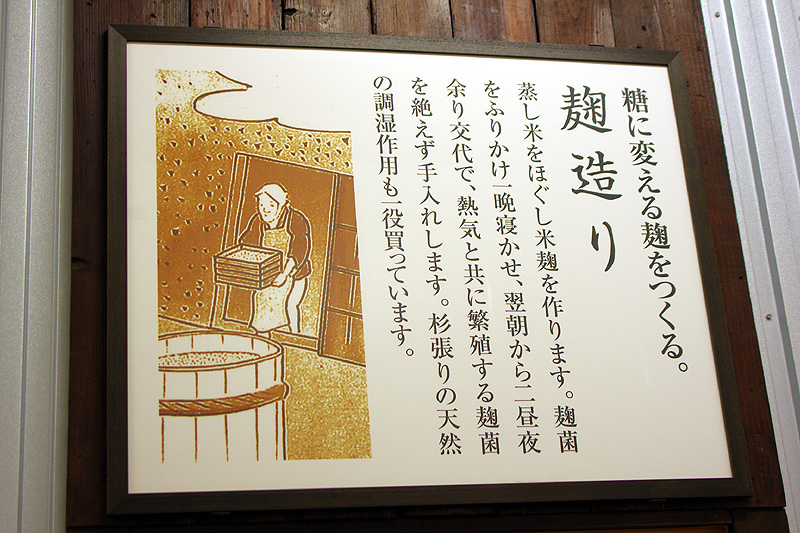 糖に変える麹をつくる。
麹造り
蒸し米をほぐし米麹を作ります。麹菌
をふりかけ一晩寝かせ、翌朝から二昼夜
余り交代で、熱気と共に繁殖する麹菌
を絶えず手入れします。杉張りの天然
の調湿作用も一役買っています。